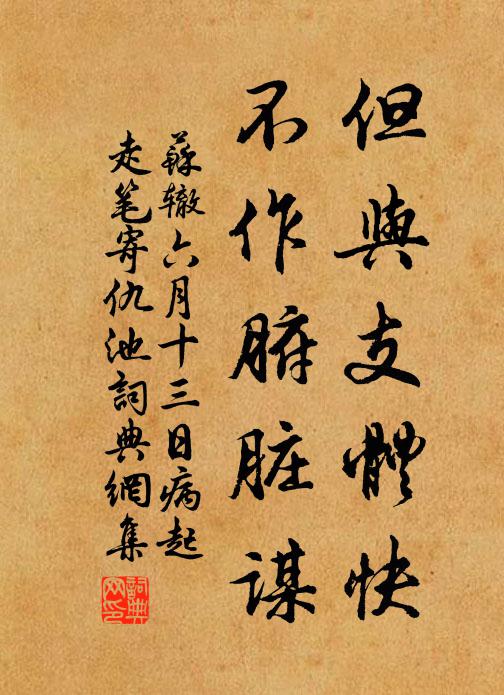 但與支體快
不作腑脏謀
蘇辙六月十三日病起
走笔寄仇池詞典網集
詞典
网印